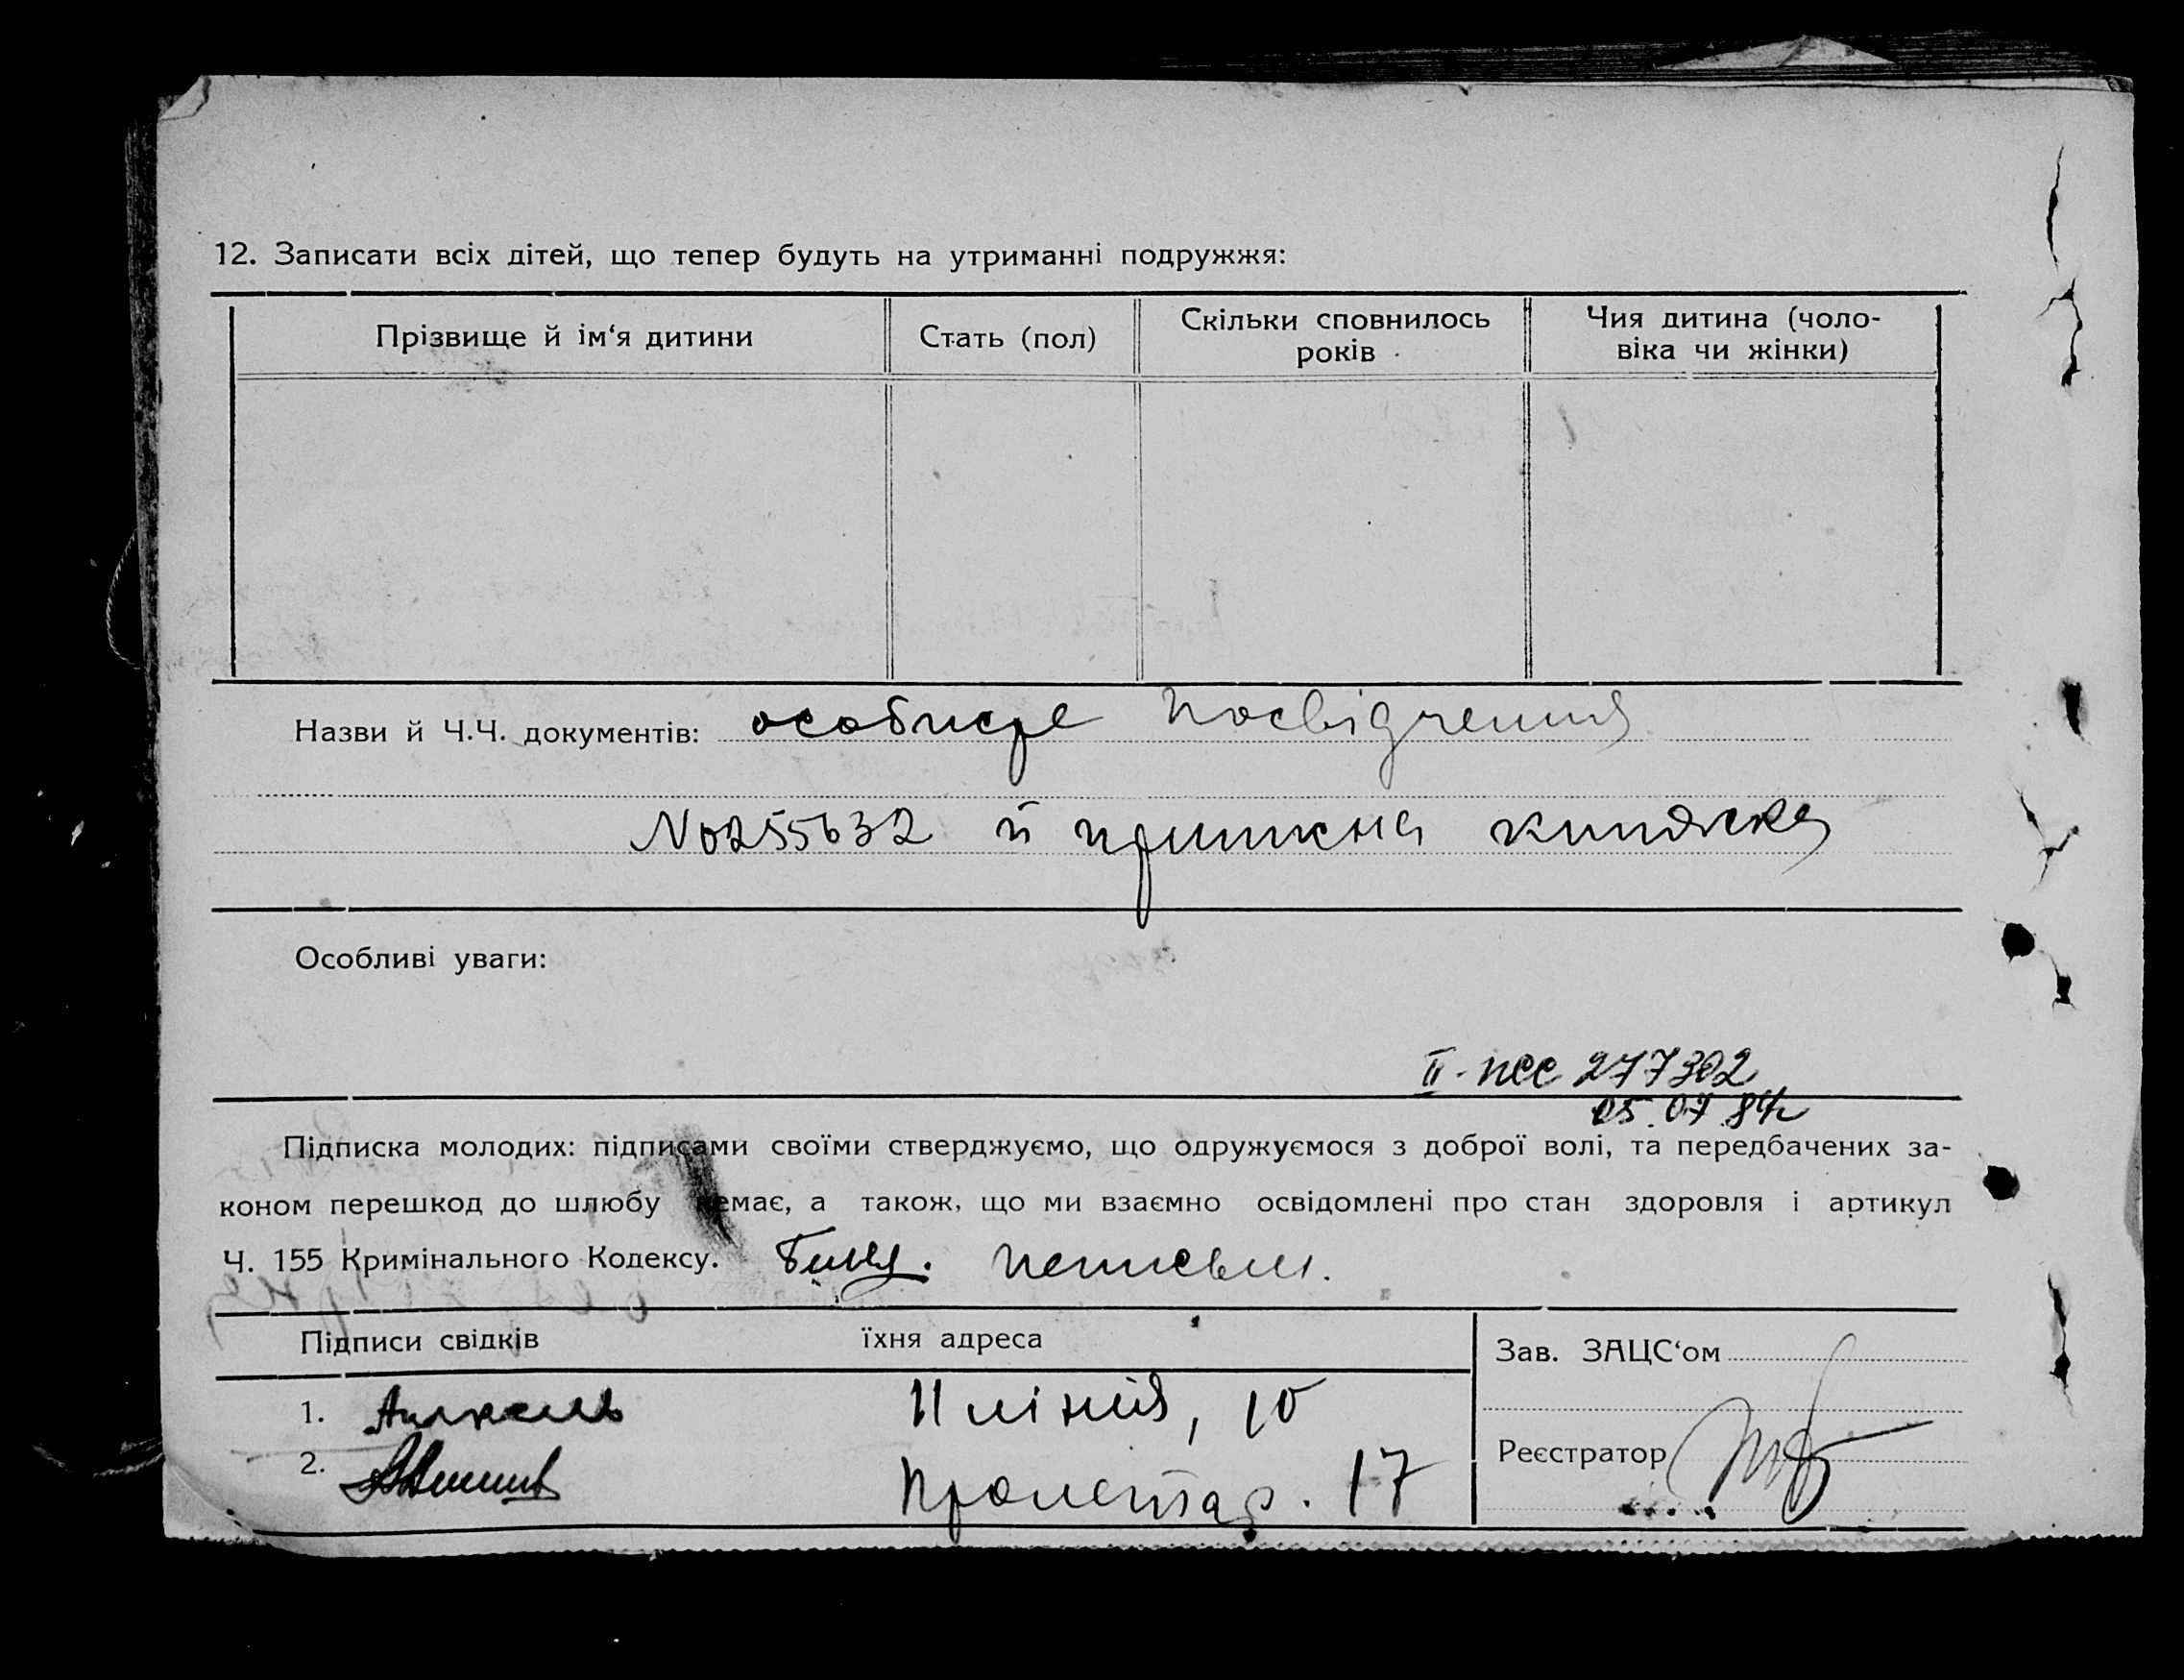 12. Записати всіх дітей, що тепер будуть на утриманні подружжя:
Прізвище й ім‘я дитини
Стать (пол)
Скільки сповнилось
років
Чия дитина (чоло-
віка чи жінки)
Назви й Ч.Ч. документів: особисте посвідчення
№0255632 й приписна книжка
Особливі уваги:
II-псс 277302
05.07.84г
Підписка молодих: підписами своїми стверджуємо, що одружуємося з доброї волі, та передбачених за-
коном перешкод до шлюбу немає, а також, що ми взаємно освідомлені про стан здоровля і артикул
Ч. 155 Кримінального Кодексу. неписьм.
Підписи свідків
їхня адреса
Зав. ЗАЦС‘ом
1.
11 лінія, 10
Реєстратор
2.
Пролетар. 17